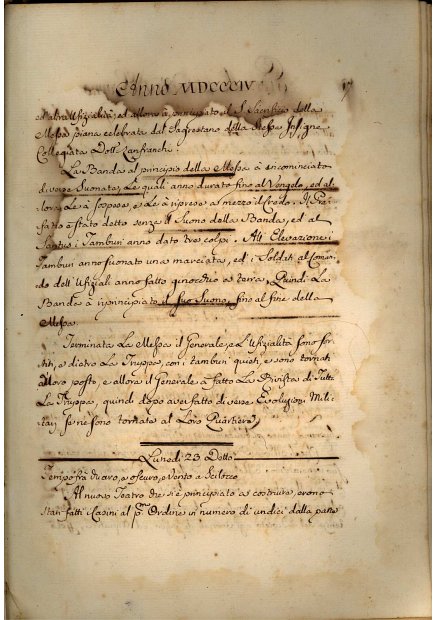 Anno MDCCCIV
ed altra Ufizialità, ed allora à principiato il S. Sacrifizio della
Messa piana celebrata dal Sagrestano della stessa Insigne
Collegiata Dott. Lanfranchi.
La Banda al principio della Messa à incominciato
diverse Suonate, Le quali anno durato fino al Vangelo, ed al-
lora Le à sospese, e Le à riprese a mezzo il Credo. Il Pre-
fazio è stato detto senza il Suono della Banda, ed al
Santus i Tamburi anno dato tre colpi. All' Elevazione i
Tamburi anno suonato una marciata, ed i Soldati al Coman-
do dell' Ufiziali anno fatto ginocchio a terra. Quindi La
Banda à riprincipiato il suo Suono, fino al fine della
Messa.
Terminata La Messa il Generale, e L'Ufizialità sono sor-
titi, e dietro La Truppa, con i tamburi quieti, e sono tornati
al loro posto, e allora il Generale à fatto La Rivista di Tutta
La Truppa, quindi dopo aver fatto diverse Evoluzioni Mili-
tari se ne sono tornati al Loro Quartiere.
Lunedi 23 Detto
Tempo fra chiaro, e oscuro, e Vento a Scilocco
Al nuovo Teatro che si è principiato a costruire, erono
stati fatti i Casini al p.mo Ordine in numero di undici dalla parte